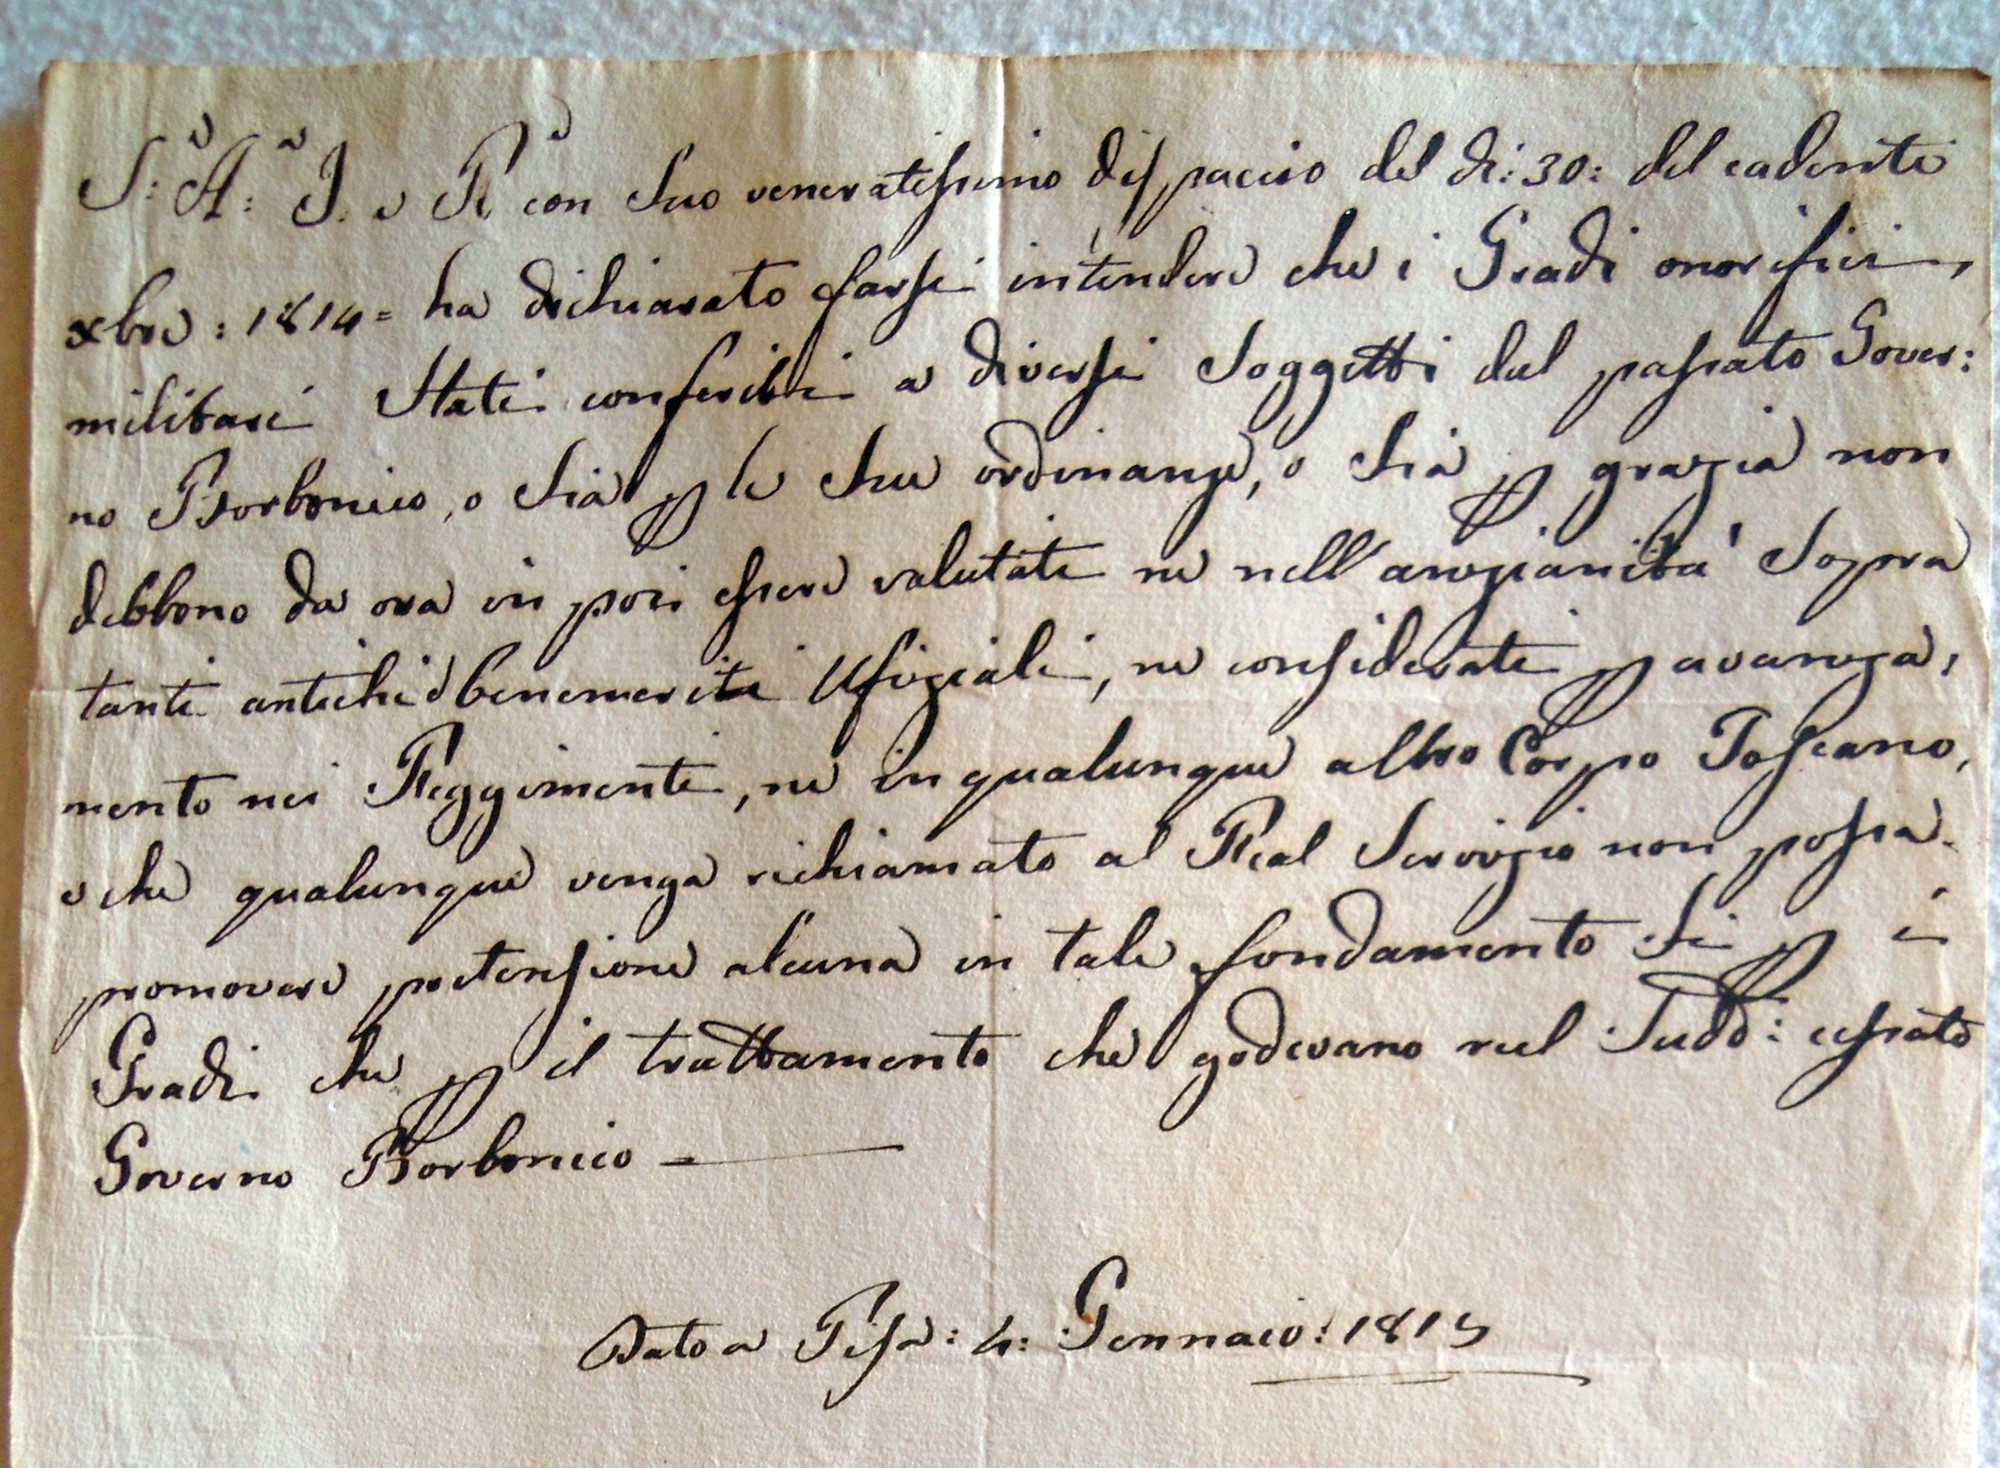 S: A: I. e R. con Suo veneratissimo dispaccio del di: 30: del cadente
xbre: 1814 = ha dichiarato farsi intendere che i Gradi onorifici,
militari Stati conferiti a diversi Soggetti dal passato Gover:
no Borbonico, o Sia p le Sue ordinanze, o Sia p grazia non
debbono da ora in poi essere valutate ne nell'anzianità Sopra
tanti antichi e benemeriti Ufiziali, ne considerati p avanza,
mento nei Reggimenti, ne in qualunque altro Corpo Toscano,
e che qualunque venga richiamato al Real Servizio non possa
promovere pretensione alcuna in tale fondamento Si p i
Gradi che p il trattamento che godevano nel Sudd: cessato
Governo Borbonico
Dato a Pisa: 4: Gennaio: 1815